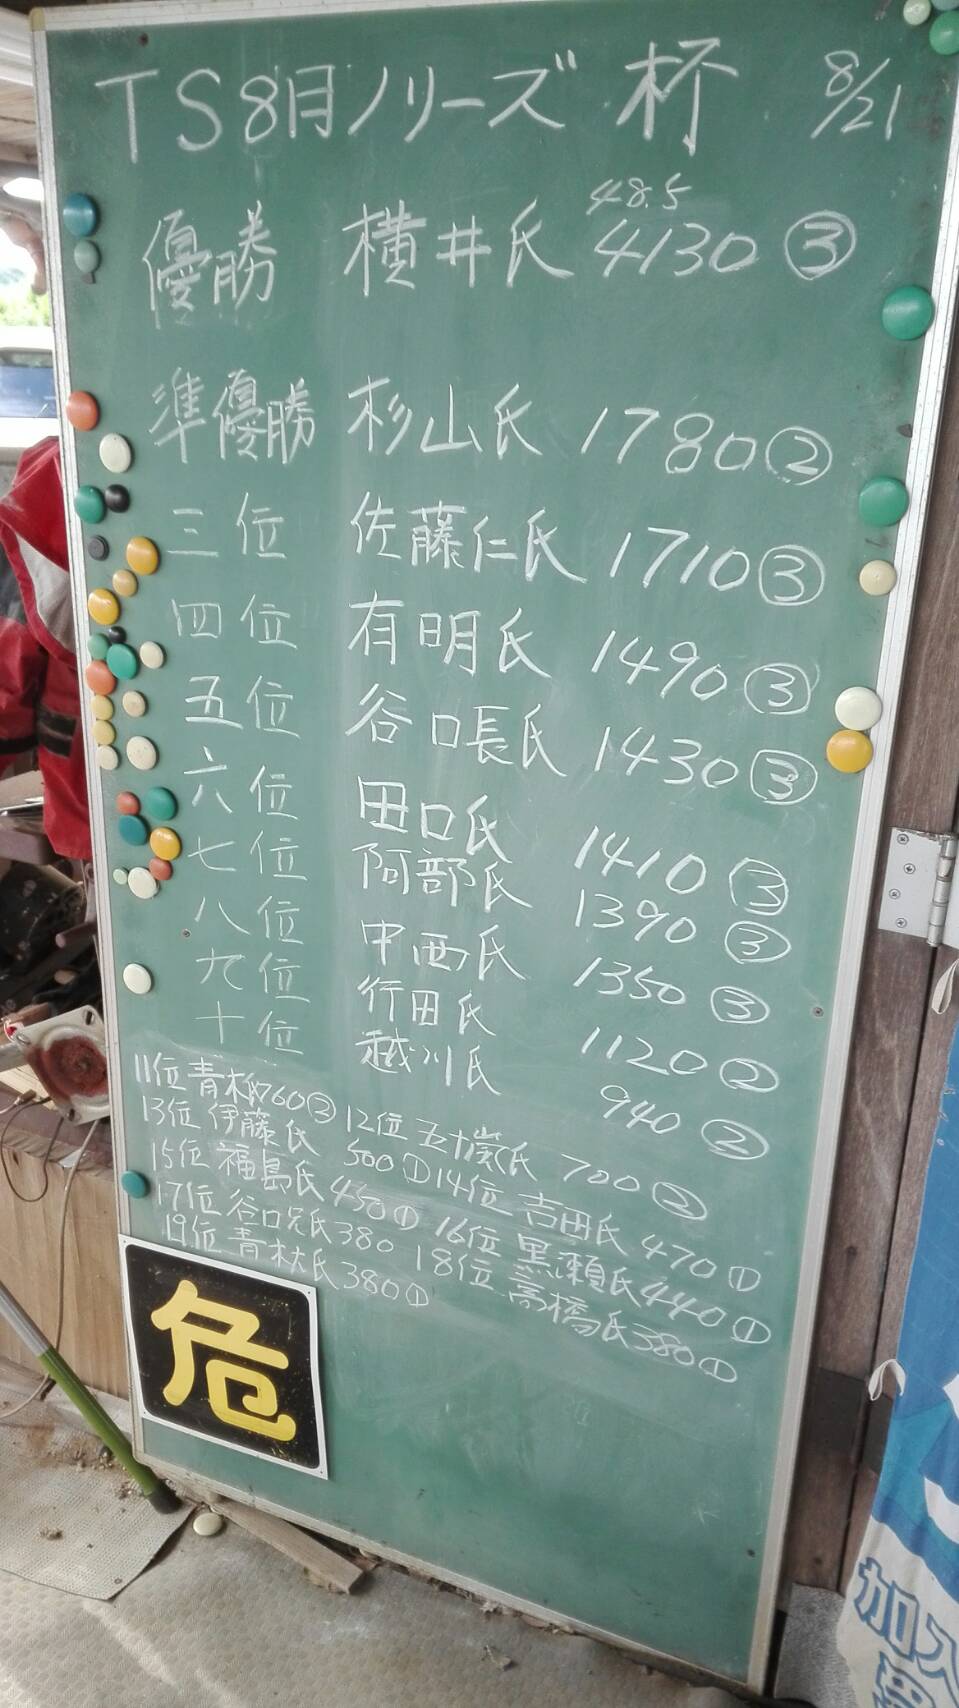 TS8月ノリーズ杯 8/21
48.5
優勝 横井氏 4130 ③
準優勝 杉山氏 1780 ②
三位 佐藤仁氏 1710 ③
四位 有明氏 1490 ③
五位 谷口長氏 1430 ③
六位 田口氏 1410 ③
七位 阿部氏 1390 ③
八位 中西氏 1350 ③
九位 行田氏 1120 ②
十位 越川氏 940 ②
11位 青木氏 760 ② 12位 五十嵐氏 700 ②
13位 伊藤氏 500 ① 14位 吉田氏 470 ①
15位 福島氏 450 ① 16位 黒瀬氏 440 ①
17位 谷口兄氏 380 18位 高橋氏 380 ①
19位 青木大氏 380 ①
危
加入